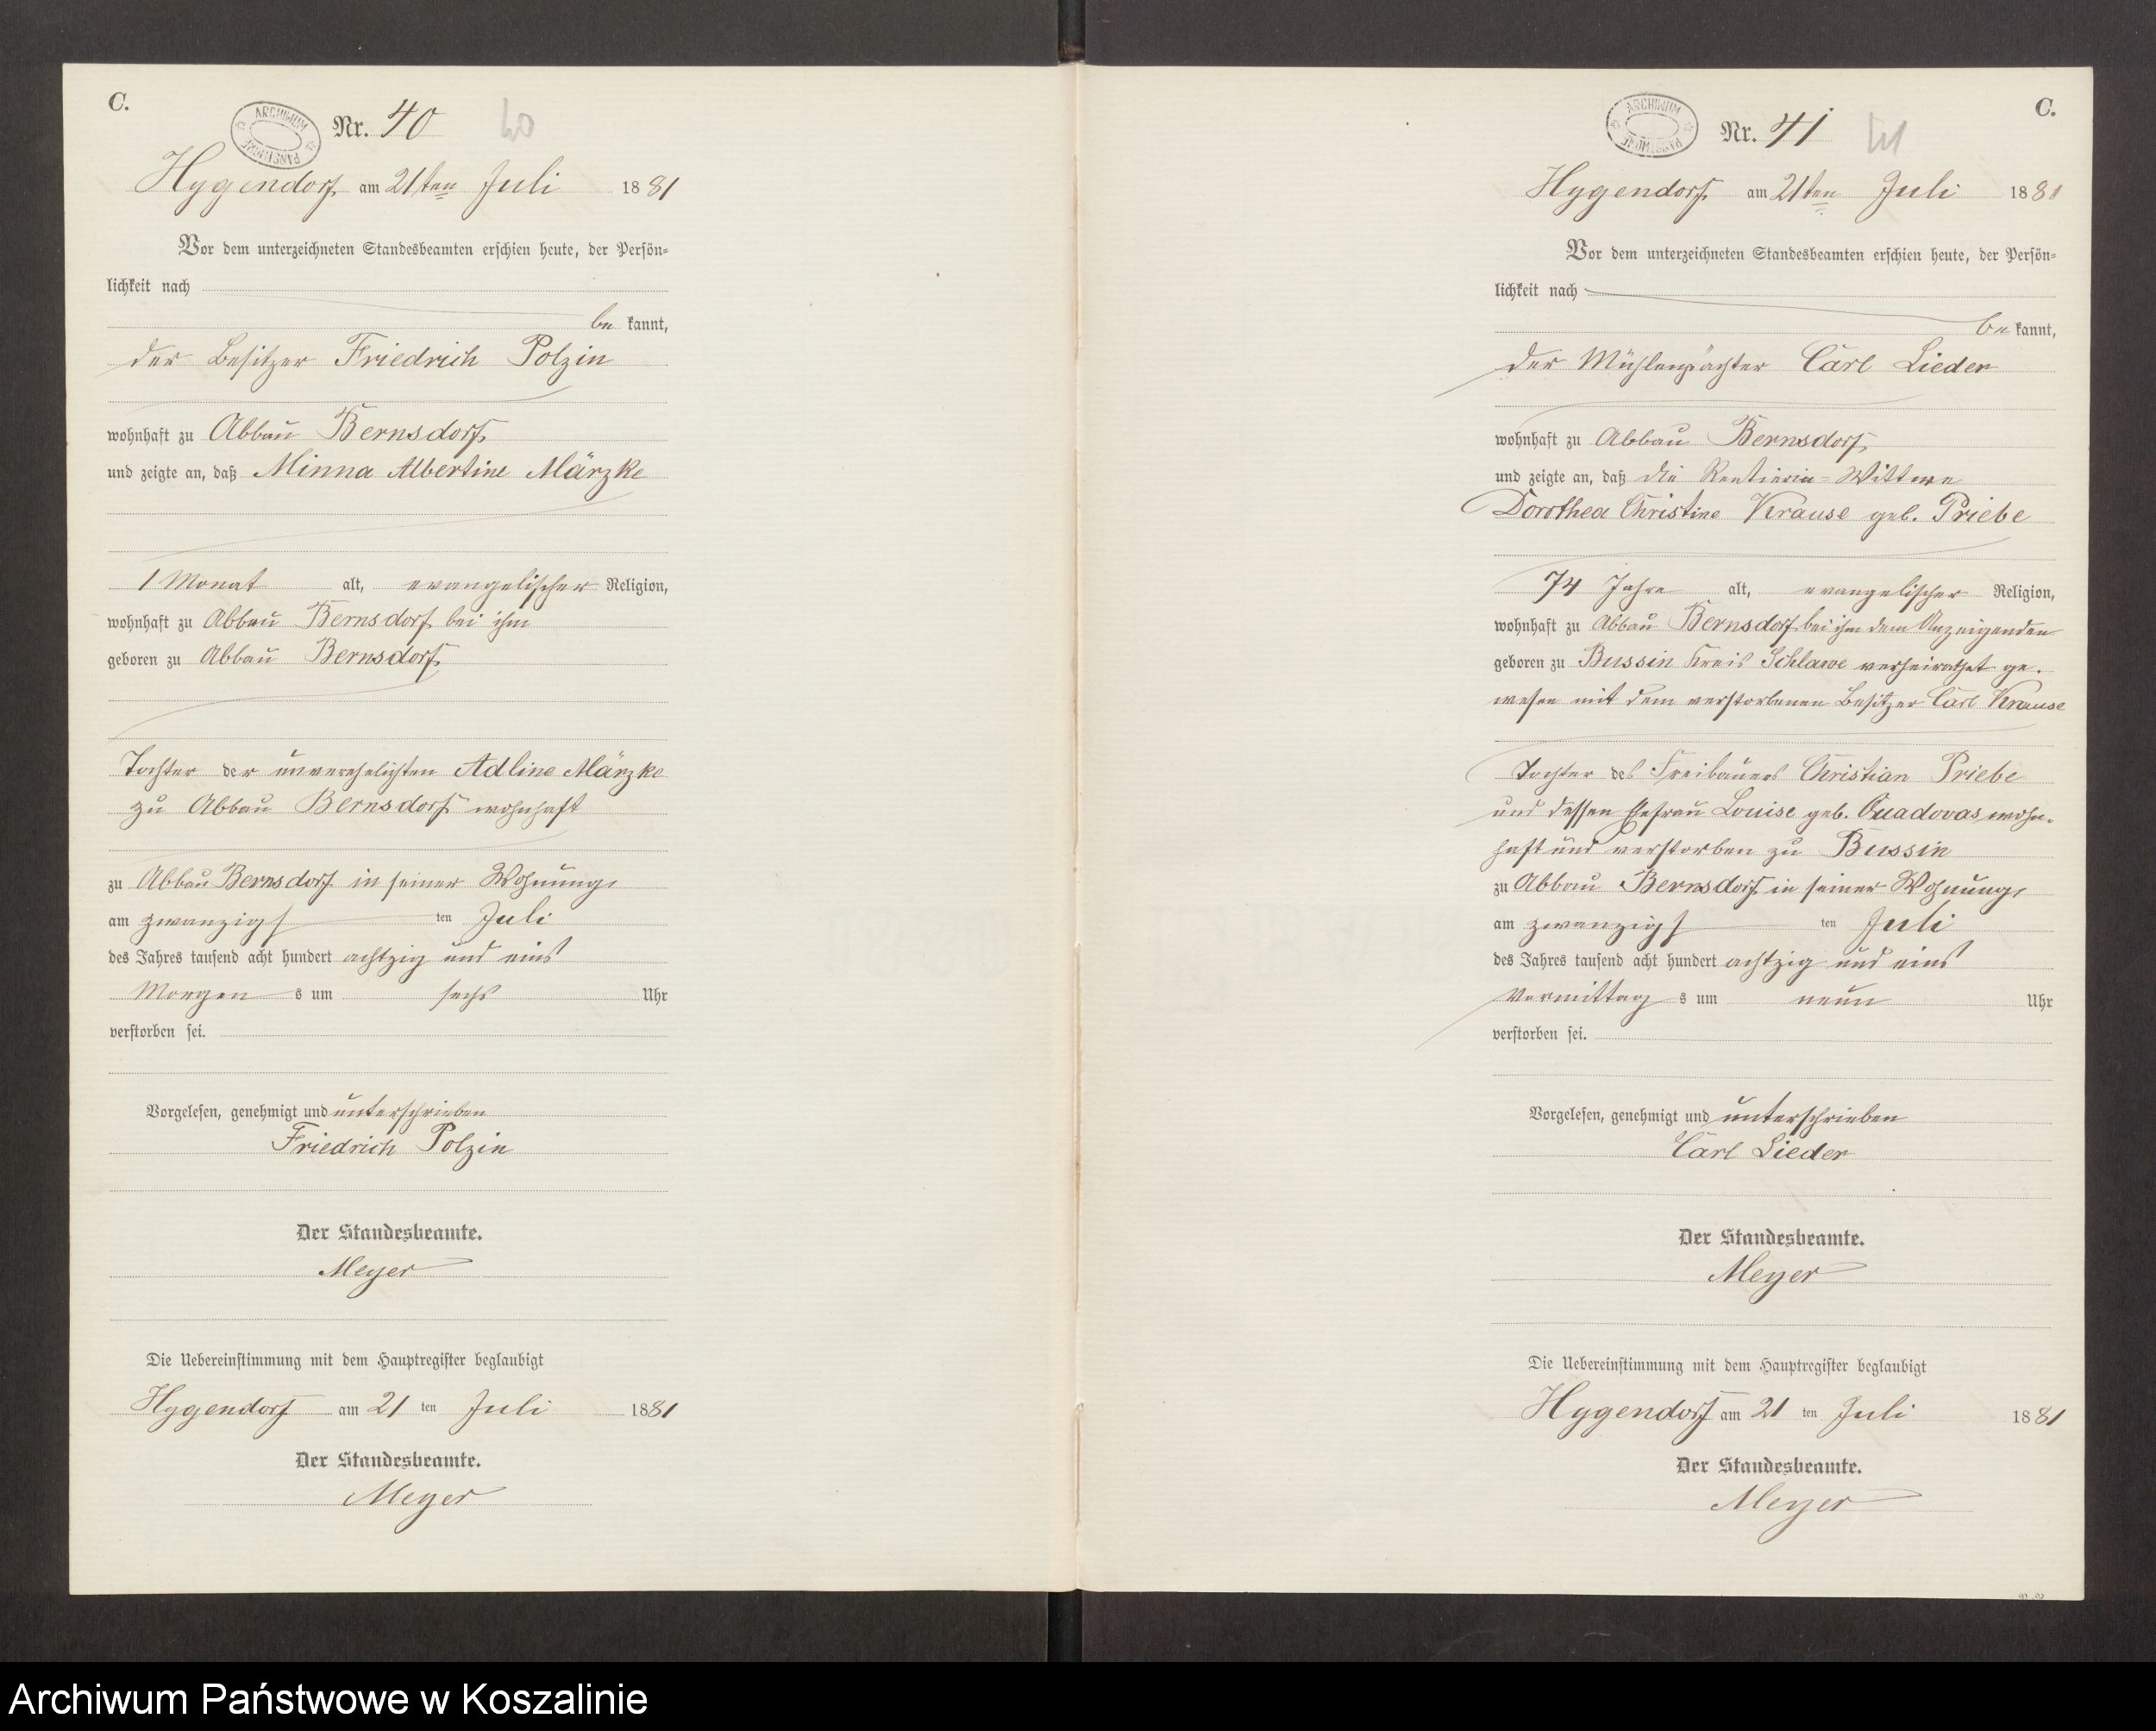 C.
ARCHIWUM PAŃSTWOWE
Nr. 40
40
Hygendorf am 21ten Juli 1881
Vor dem unterzeichneten Standesbeamten erschien heute, der Persön=
lichkeit nach
be kannt,
der Besitzer Friedrich Polzin
wohnhaft zu Abbau Bernsdorf
und zeigte an, daß Minna Albertine Märzke
1 Monat alt, evangelischer Religion,
wohnhaft zu Abbau Bernsdorf bei ihm
geboren zu Abbau Bernsdorf
Tochter der unverehelichten Adline Märzke
zu Abbau Bernsdorf wohnhaft
zu Abbau Bernsdorf in seiner Wohnung,
am zwanzigs ten Juli
des Jahres tausend acht hundert achtzig und eins
Morgen s um sechs Uhr
verstorben sei.
Vorgelesen, genehmigt und unterschrieben
Friedrich Polzin
Der Standesbeamte.
Meyer
Die Uebereinstimmung mit dem Hauptregister beglaubigt
Hygendorf am 21 ten Juli 1881
Der Standesbeamte.
Meyer
C.
ARCHIWUM PAŃSTWOWE
Nr. 41
41
Hygendorf am 21ten Juli 1881
Vor dem unterzeichneten Standesbeamten erschien heute, der Persön=
lichkeit nach
be kannt,
der Mühlenpächter Carl Lieder
wohnhaft zu Abbau Bernsdorf
und zeigte an, daß die Rentierin=Wittwe
Dorothea Christine Krause geb. Priebe
74 Jahre alt, evangelischer Religion,
wohnhaft zu Abbau Bernsdorf bei ihm dem Anzeigenden
geboren zu Bussin Kreis Schlawe verheirathet ge.
wesen mit dem verstorbenen Besitzer Carl Krause
Tochter des Freibauers Christian Priebe
und dessen Ehefrau Louise geb. Quadovas wohn.
haft und verstorben zu Bussin
zu Abbau Bernsdorf in seiner Wohnung,
am zwanzigs ten Juli
des Jahres tausend acht hundert achtzig und eins
Vormittag s um neun Uhr
verstorben sei.
Vorgelesen, genehmigt und unterschrieben
Carl Lieder
Der Standesbeamte.
Meyer
Die Uebereinstimmung mit dem Hauptregister beglaubigt
Hygendorf am 21 ten Juli 1881
Der Standesbeamte.
Meyer
Archiwum Państwowe w Koszalinie